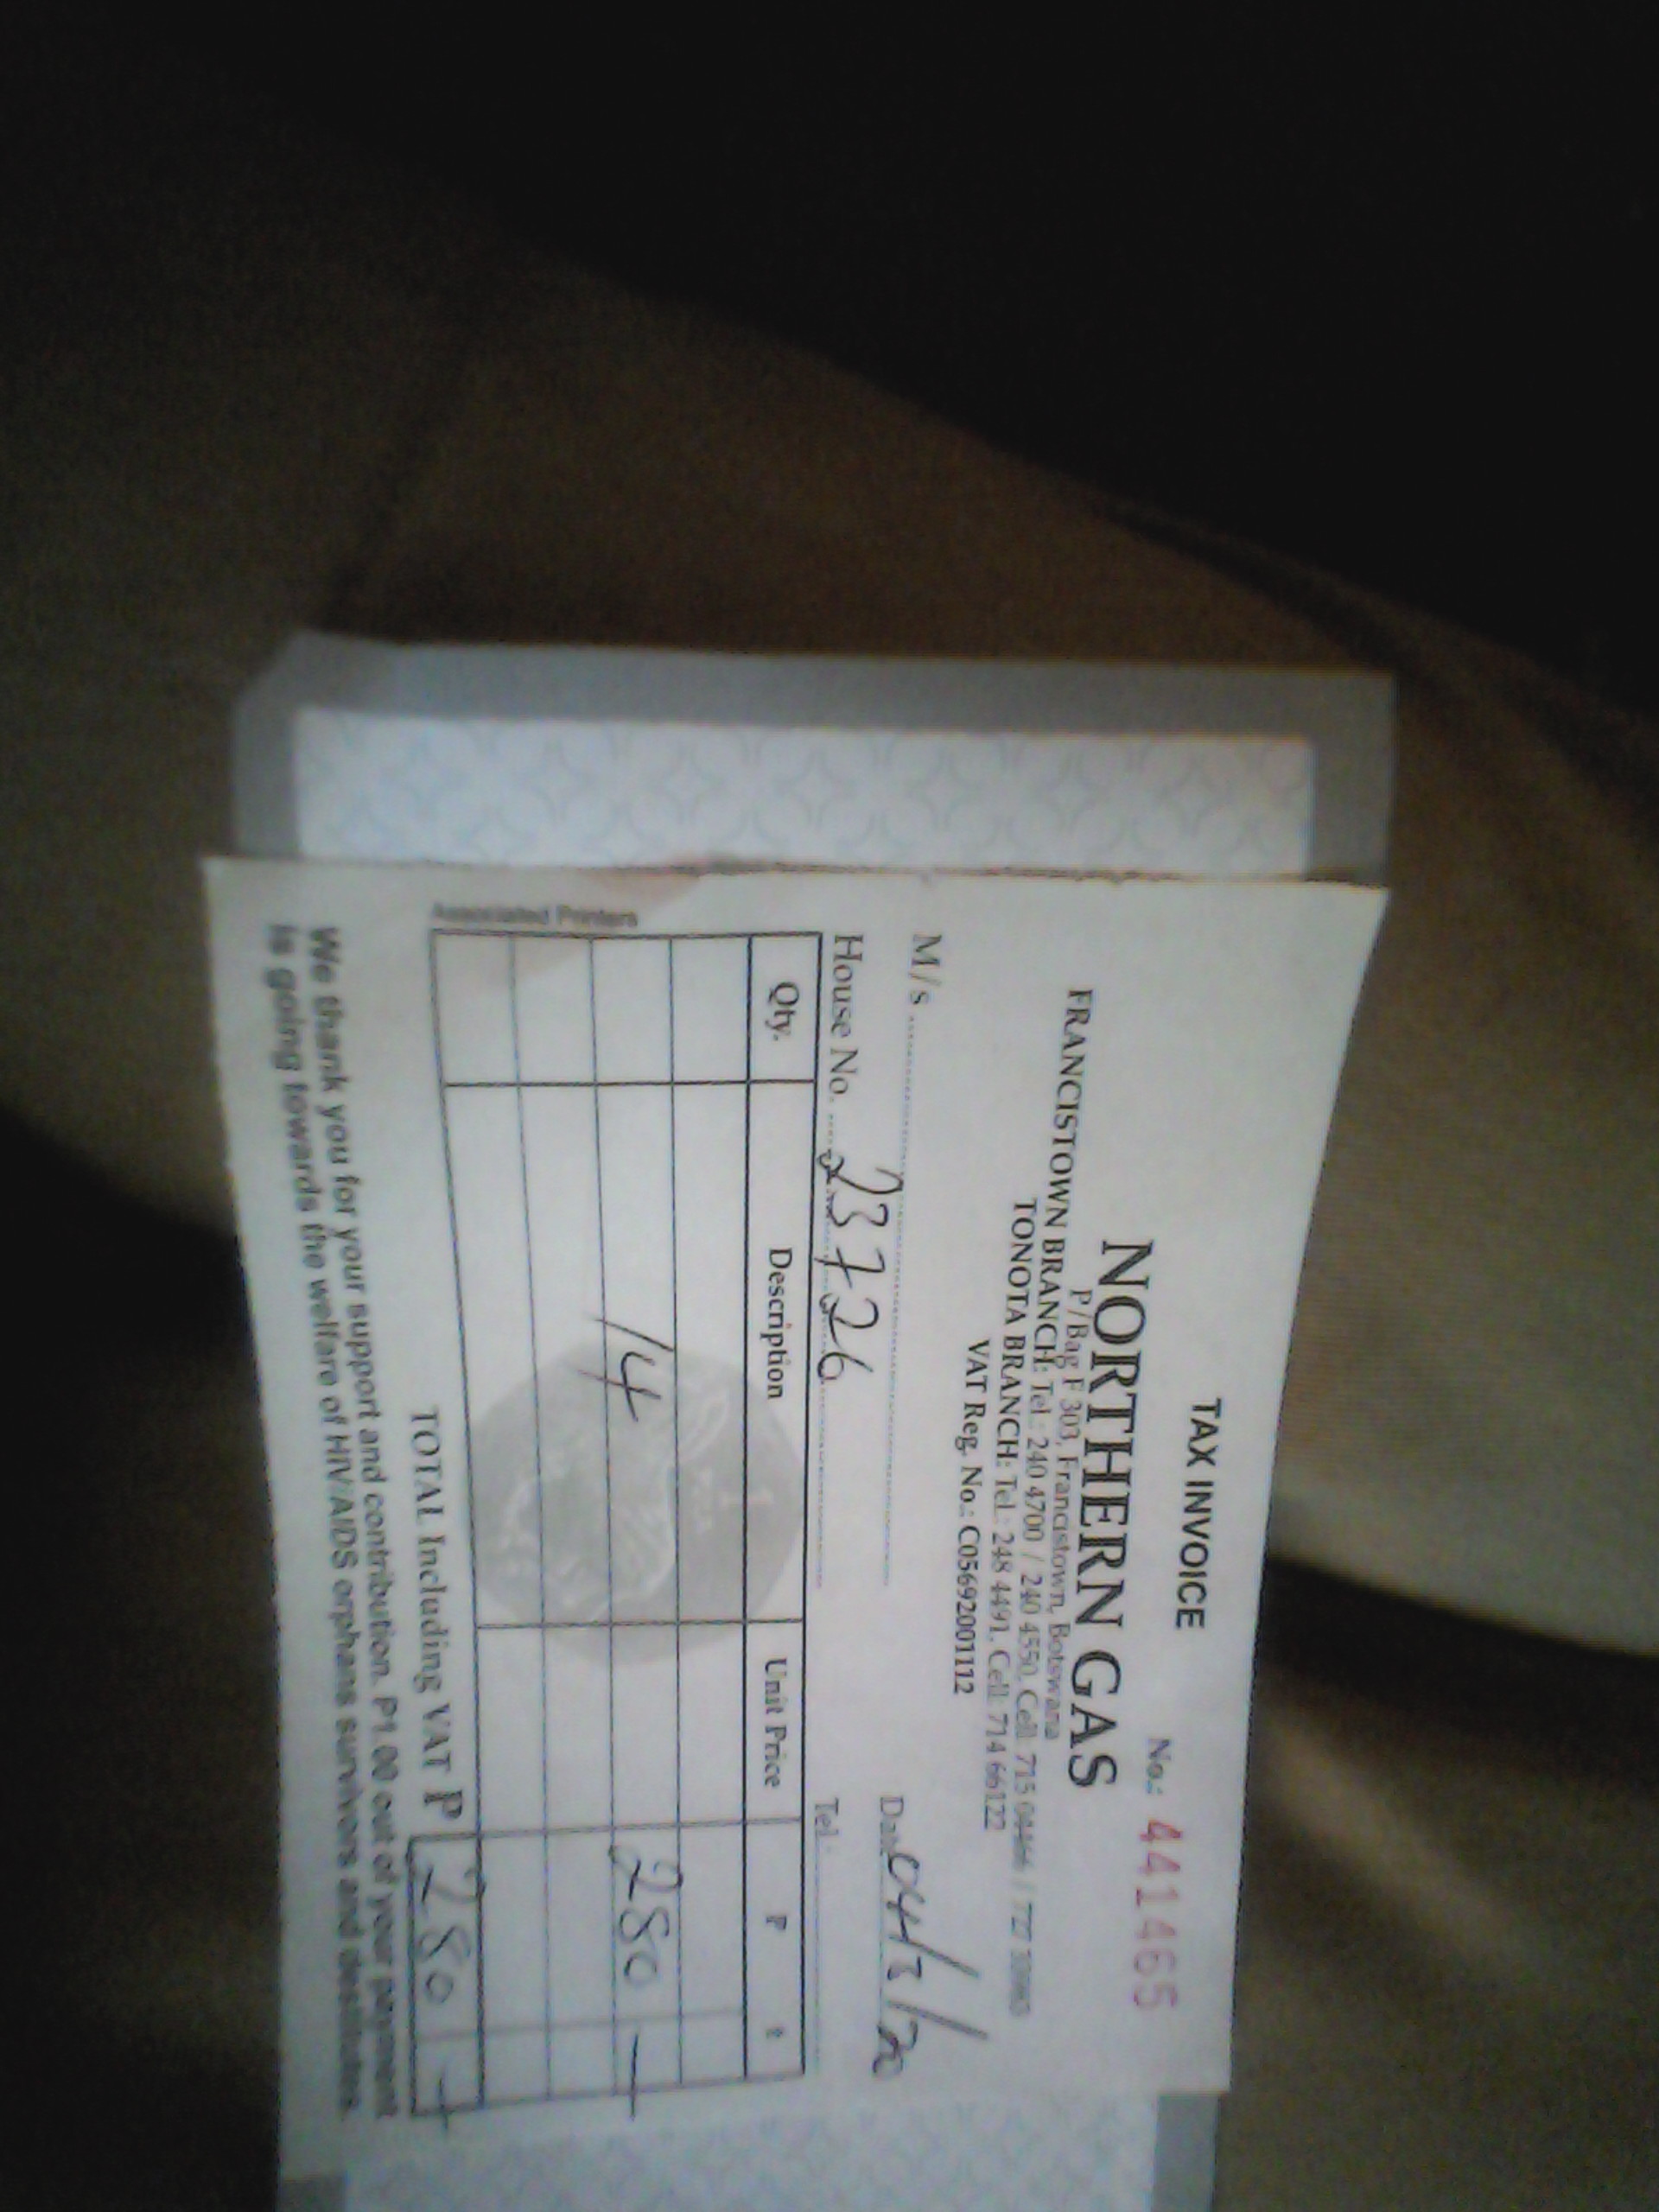 TAX INVOICE
No.: 441465
NORTHERN GAS
P/Bag F 303, Francistown, Botswana
FRANCISTOWN BRANCH: Tel.: 240 4700 / 240 4550, Cell: 715 / 727
TONOTA BRANCH: Tel.: 248 4491, Cell: 714 66122
VAT Reg. No.: C05692001112
M/s
Date 04/3/20
House No. 23726 Tel.:
Qty. Description Unit Price P t
14 280 —
TOTAL Including VAT P 280 —
Associated Printers
We thank you for your support and contribution. P1.00 out of your payment
is going towards the welfare of HIV/AIDS orphans survivors and destitutes.